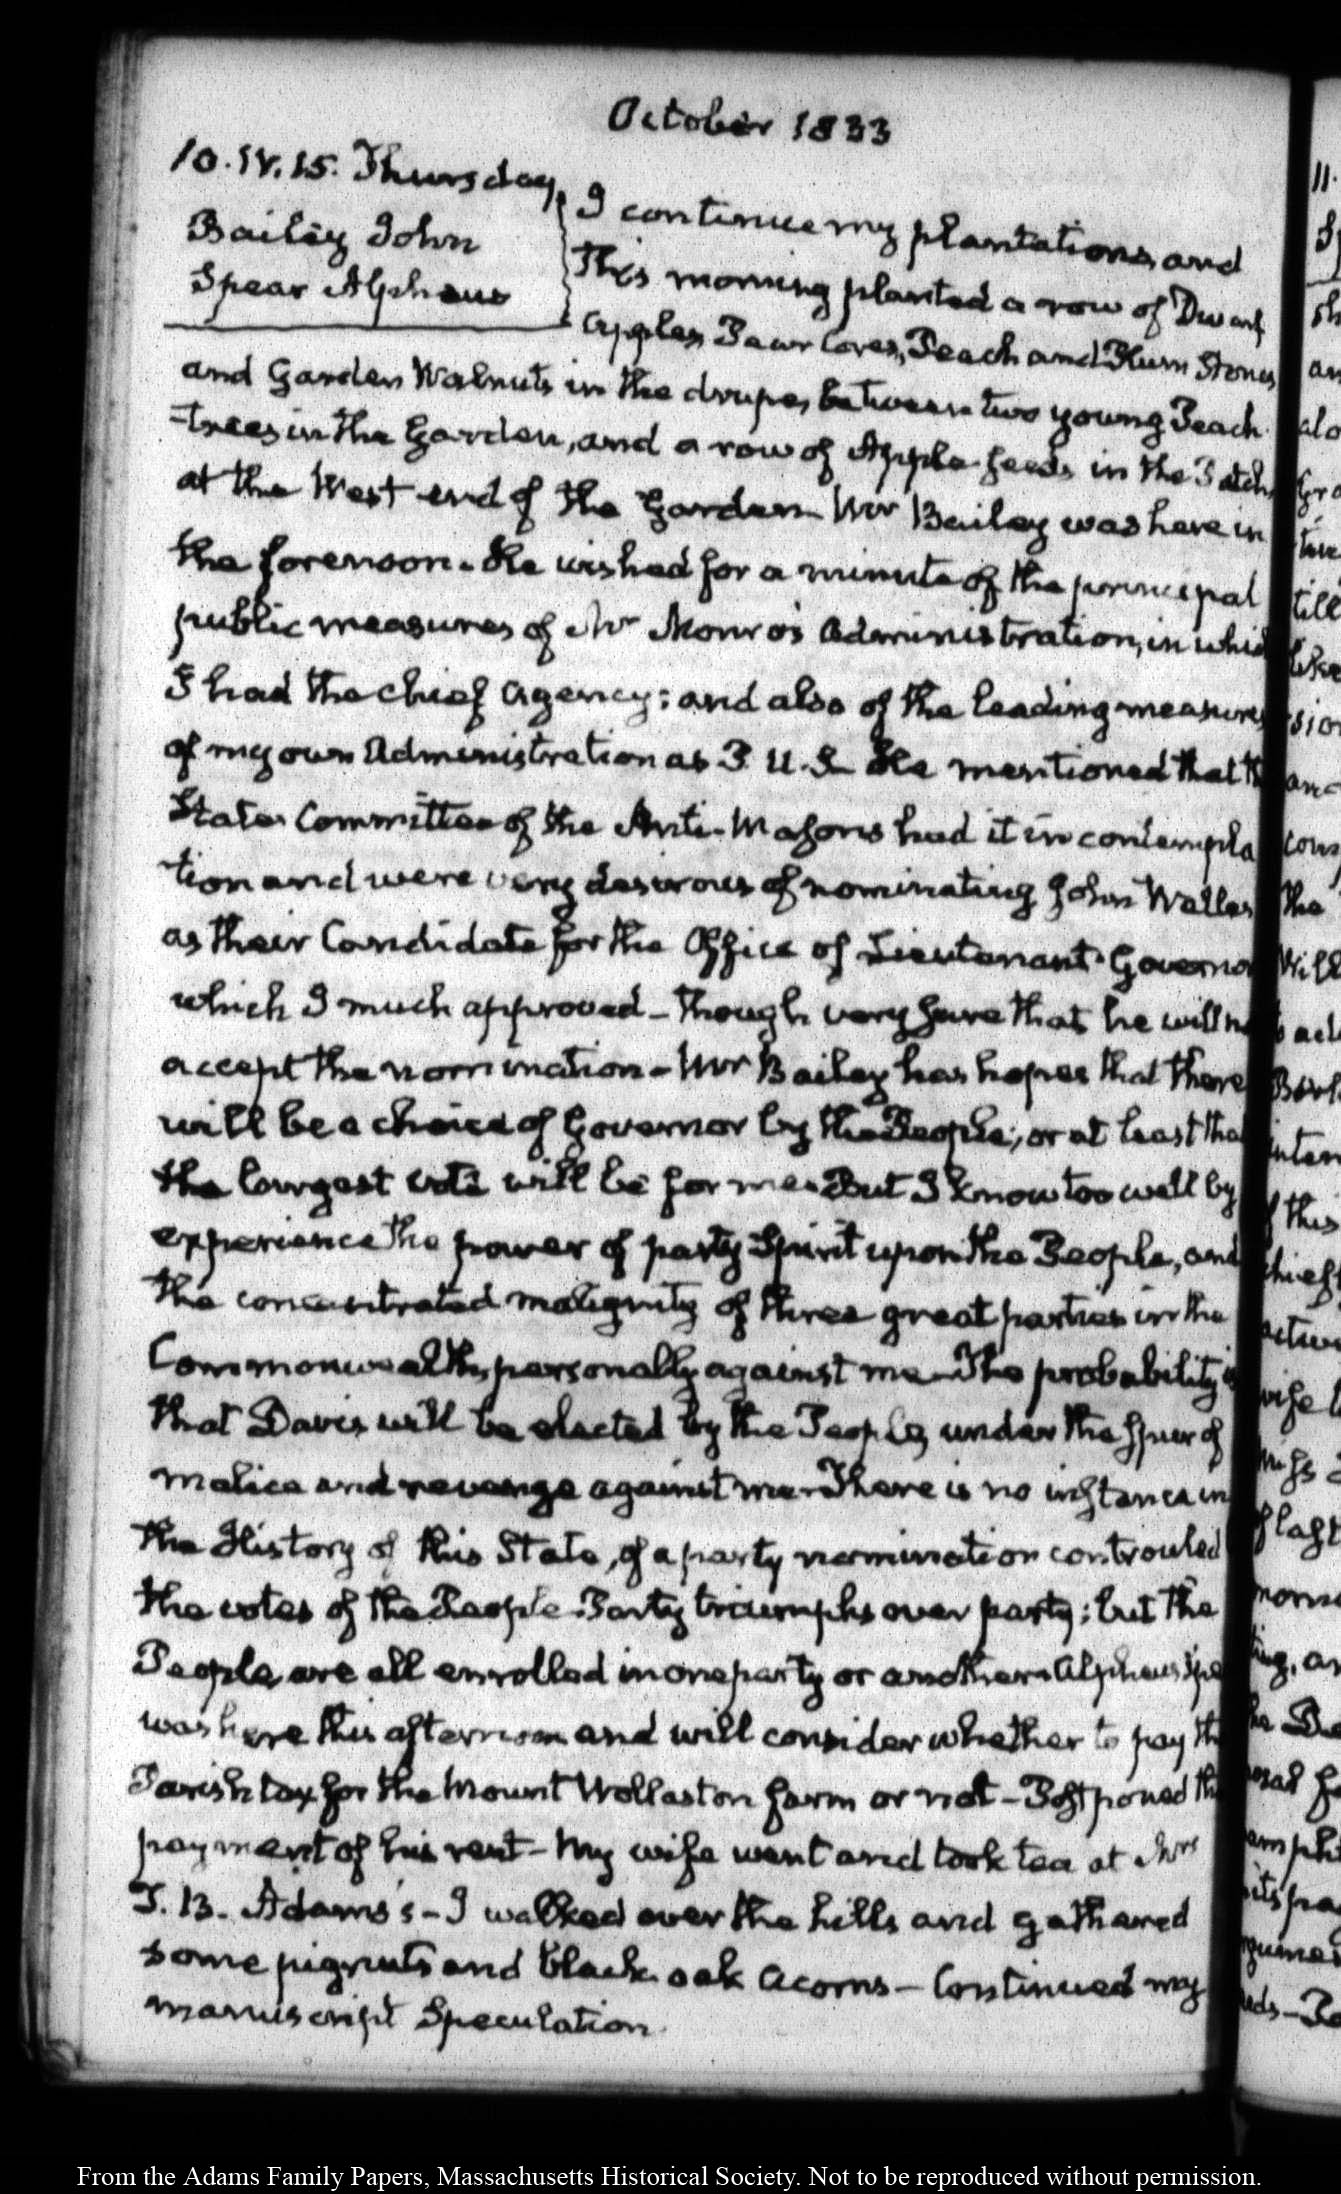 October 1833
10. IV. 15. Thursday
Bailey John
Spear Alpheus
I continue my plantations, and
this morning planted a row of Dwarf
Apples, Pear Cores, Peach and Plum Stones
and Garden Walnuts in the drupes between two young Peach
-trees in the Garden, and a row of Apple-seeds in the Patch
at the West end of the Garden- Mr Bailey was here in
the forenoon. He wished for a minute of the principal
public measures of Mr Monro's Administration, in which
I had the chief agency; and also of the leading measures
of my own Administration as P. U.S- He mentioned that the
State Committee of the Anti-Masons had it in contempla
tion and were very desirous of nominating John
as their Candidate for the Office of Lieutenant-Governor
which I much approved- though very sure that he will not
accept the nomination- Mr Bailey has hopes that there
will be a choice of Governor by the People; or at least that
the largest vote will be for me- But I know too well by
experience the power of party Spirit upon the People, and
the concentrated malignity of three great parties in the
Commonwealth, personally against me- The probability is
that Davis will be elected by the People, under the spur of
malice and revenge against me- There is no instance in
the History of this State, of a party nomination controuled
the votes of the People. Party triumphs over party; but the
People are all enrolled in one party or another- Alpheus Spe
was here this afternoon and will consider whether to pay the
Parish tax for the Mount Wollaston farm or not- Postponed the
payment of his rent- My wife went and took tea at Mrs
T. B. Adams's- I walked over the hills and gathered
some pignuts and black oak Acorns- Continued my
manuscript Speculation.
From the Adams Family Papers, Massachusetts Historical Society. Not to be reproduced without permission.